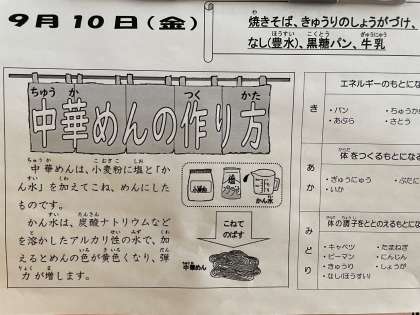 9月10日(金)
焼きそば、きゅうりのしょうがづけ、
なし(豊水)、黒糖パン、牛乳
中華めんの作り方
中華めんは、小麦粉に塩と「か
ん水」を加えてこね、めんにした
ものです。
かん水は、炭酸ナトリウムなど
を溶かしたアルカリ性の水で、加
えるとめんの色が黄色くなり、弾
力が増します。
小麦粉
かん水
こねて
のばす
中華めん
エネルギーのもとにな
き
・パン
・ちゅうか
・あぶら
・さとう
体をつくるもとにな
あか
・ぎゅうにゅう
・ぶたに
・いか
体の調子をととのえるもとにな
みどり
・キャベツ
・たまねぎ
・ピーマン
・にんじん
・きゅうり
・しょうが
・なし(ほうすい)